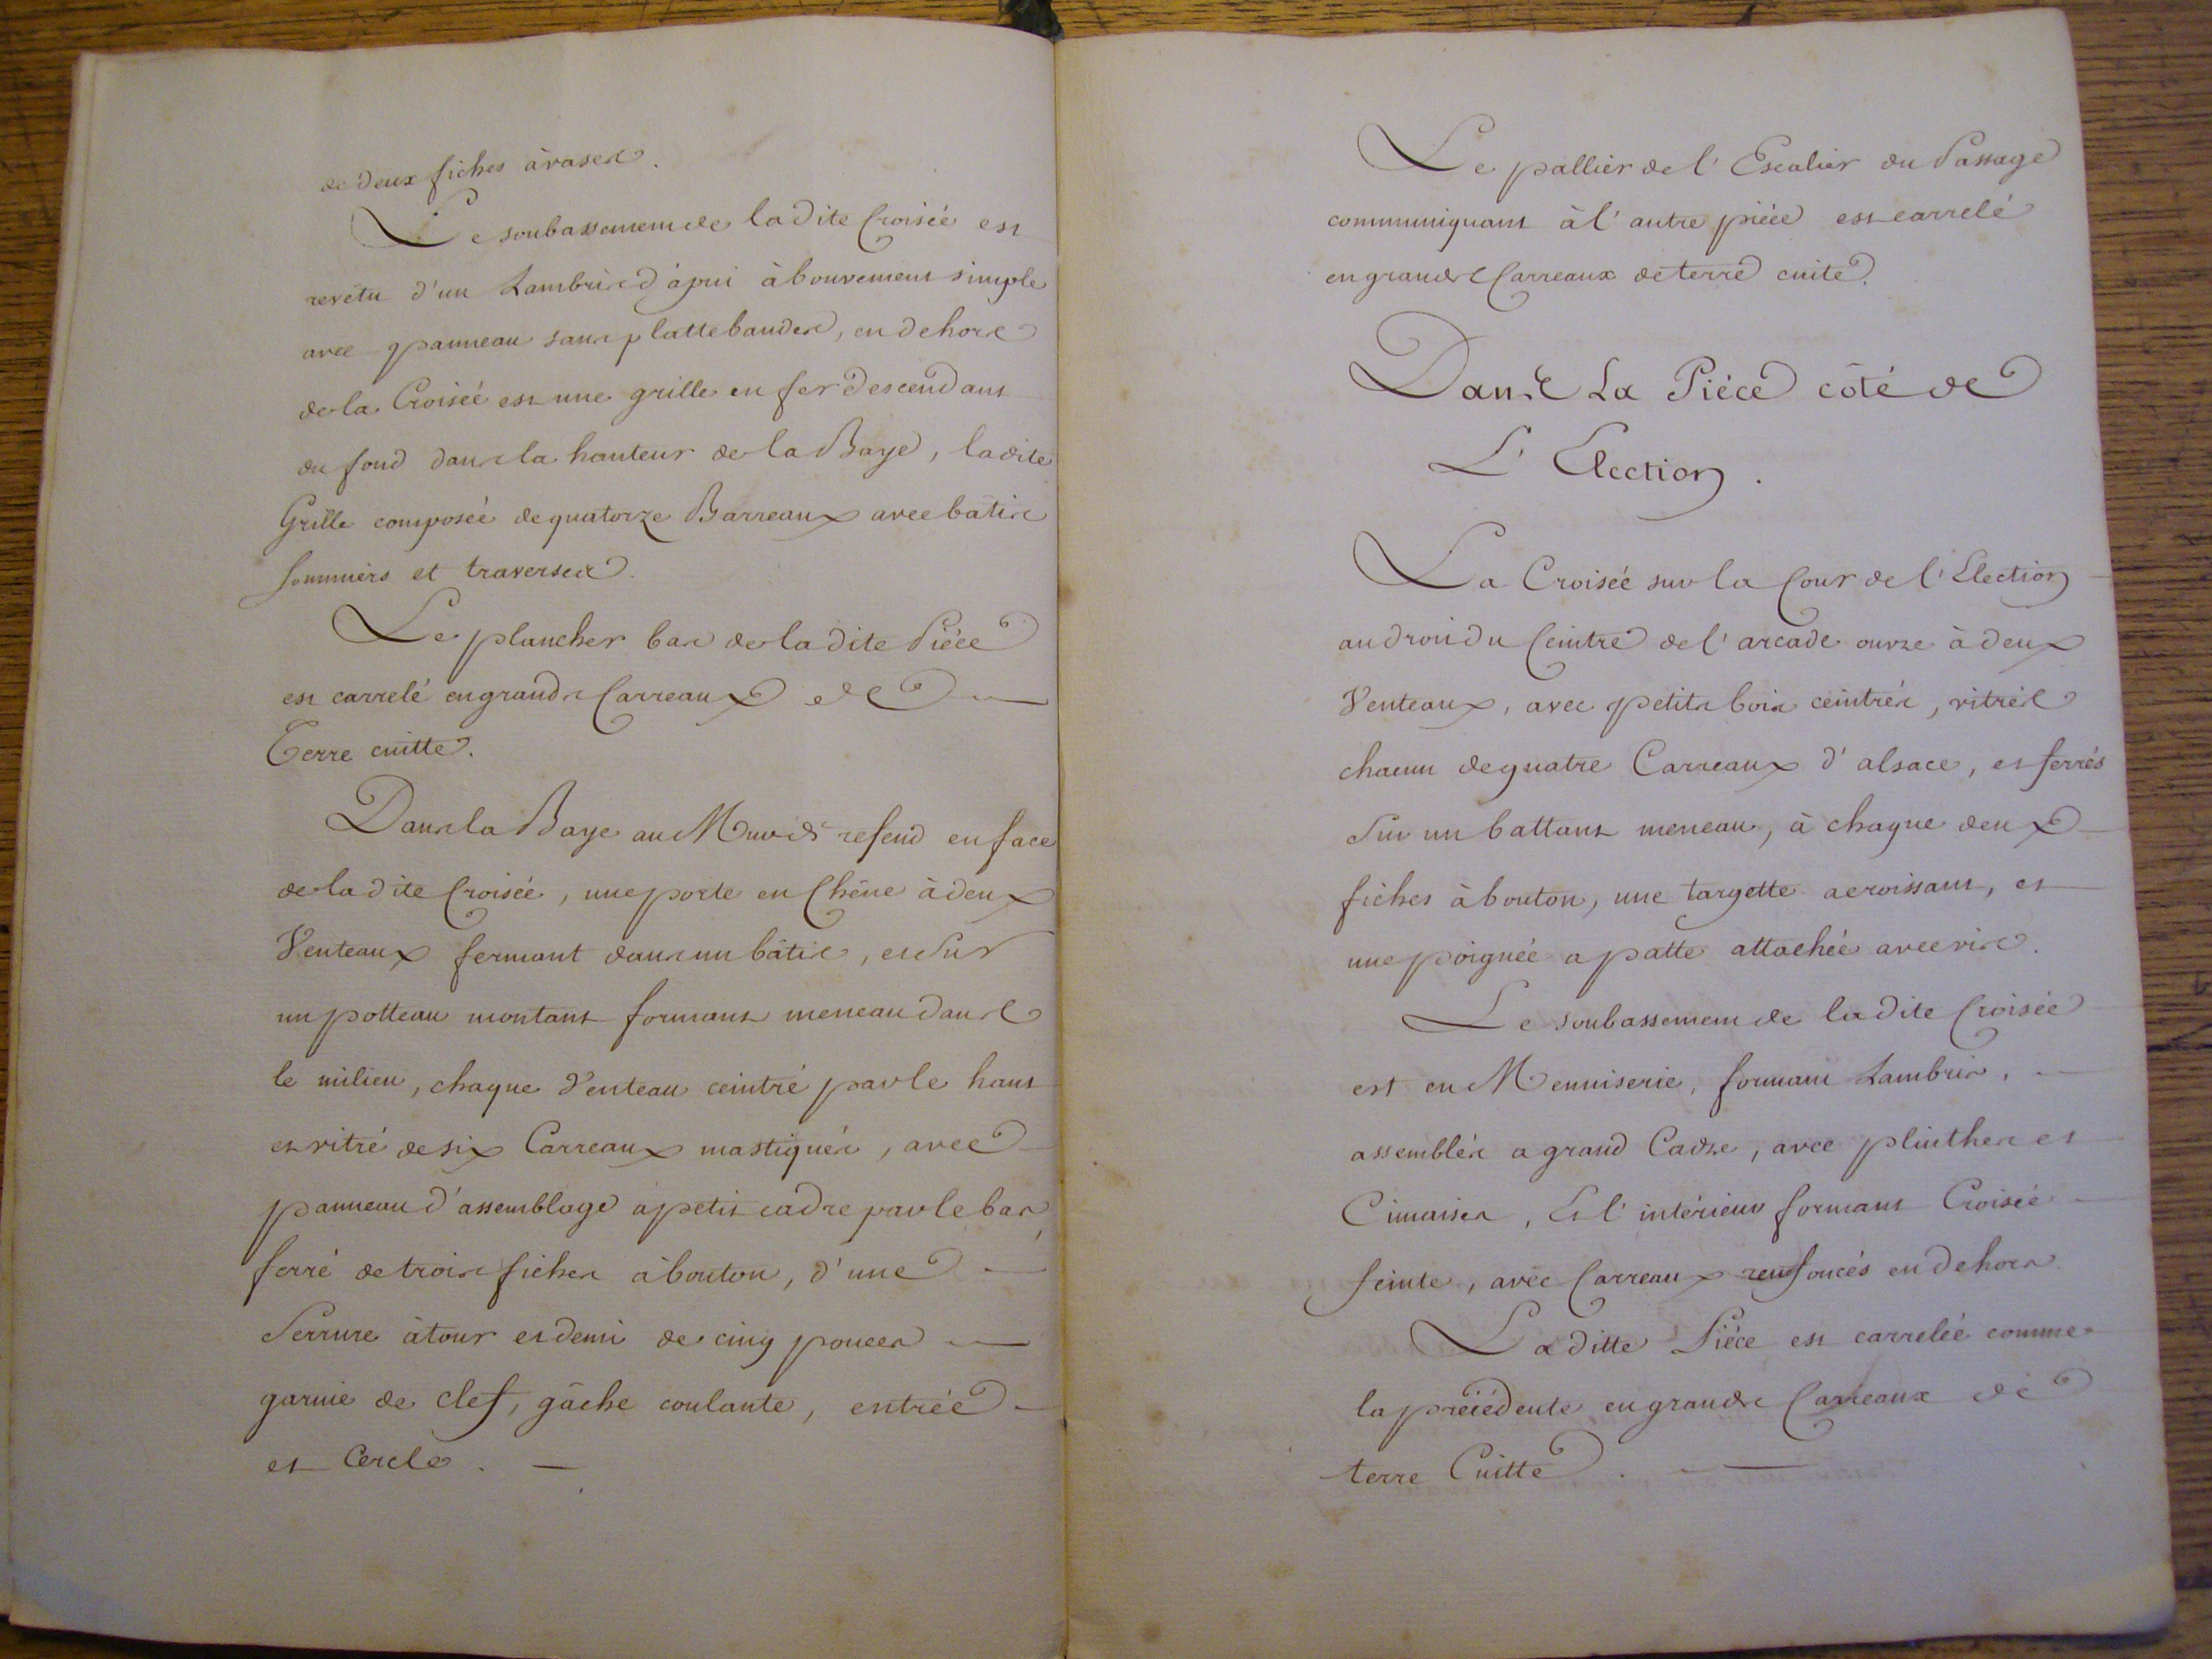 de deux fiches à vases.
Le soubassement de la dite Croisée est
revétu d'un Lambris d'apui à bouvement simple
avec panneau sans plattebandes, en dehors
de la Croisée est une grille en fer descendant
du fond dans la hauteur de la Baye, ladite
Grille composée de quatorze Barreaux avec bâtis
sommiers et traverses.
Le plancher bas de la dite Piéce
est carrelé en grands Carreaux de
Terre cuitte.
Dans la Baye au Mur de refend en face
de la dite Croisée, une porte en Chêne à deux
Venteaux fermant dans un bâtis, et Sur
un potteau montant formant meneau dans
le milieu, chaque Venteau ceintré par le haut
et vitré de six Carreaux mastiqués, avec
panneau d'assemblage a petit cadre par le bas,
ferré de trois fiches à bouton, d'une
Serrure à tour et demi de cinq pouces
garnie de clef, gâche coulante, entrée
et Cercle.
Le pallier de l'Escalier du Passage
communiquant à l'autre piéce est carrelé
en grands Carreaux de terre cuite.
Dans La Piéce côté de
L'Election.
La Croisée sur la Cour de l'Election
au droit du Ceintre de l'arcade ouvre à deux
Venteaux, avec petits bois ceintrés, vitrés
chacun de quatre Carreaux d'alsace, et ferrés
Sur un battant meneau, à chaque deux
fiches à bouton, une targette a croissant, et
une poignée a patte attachée avec vis.
Le soubassement de la dite Croisée
est en Menuiserie, formant Lambris,
assemblés a grand Cadre, avec plinthes et
Cimaises, Et l'intérieur formant Croisée
feinte, avec Carreaux renfoncés en dehors
La ditte Piéce est carrelée comme
la précédente en grands Carreaux de
terre Cuitte.